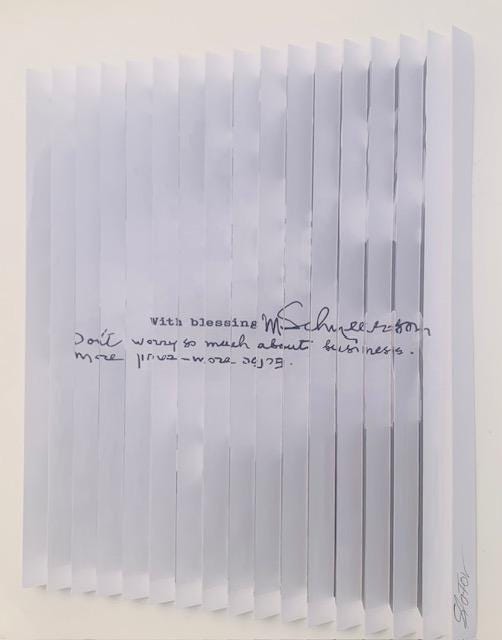 With blessing M. Schneerson
Don't worry so much about business.
more בטחון - more - פרנסה.